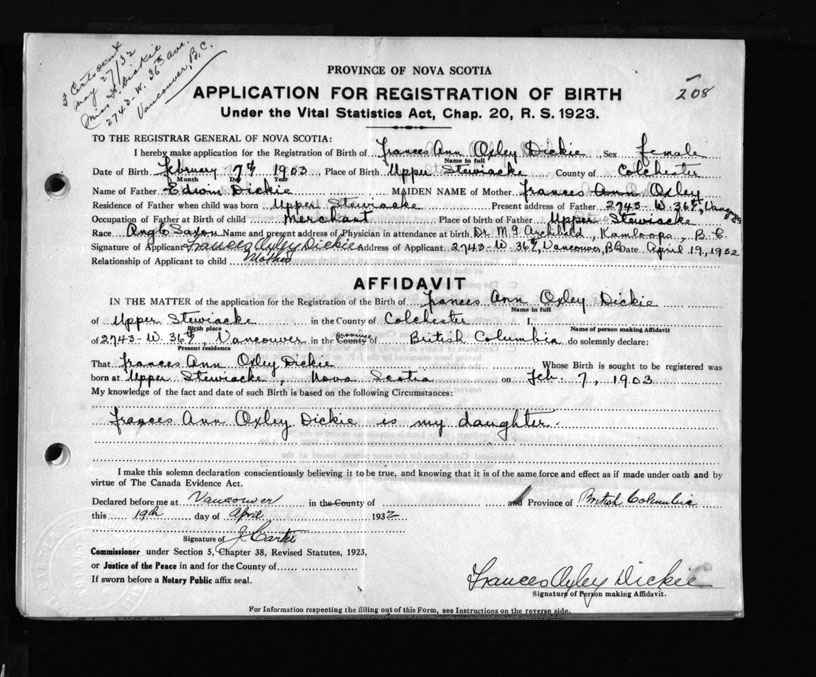 3 Cert sent
May 27/32
Miss A. Dickie
2743-W. 36th ave.
Vancouver, B.C.
208
PROVINCE OF NOVA SCOTIA
APPLICATION FOR REGISTRATION OF BIRTH
Under the Vital Statistics Act, Chap. 20, R. S. 1923.
TO THE REGISTRAR GENERAL OF NOVA SCOTIA:
I hereby make application for the Registration of Birth of Frances Ann Oxley Dickie Sex female
Name in full
Date of Birth February 7th 1903 Place of Birth Upper Stewiacke County of Colchester
Month Day Year
Name of Father Edwin Dickie MAIDEN NAME of Mother Frances Ann Oxley
Residence of Father when child was born Upper Stewiacke Present address of Father 2743-W. 36th,
Occupation of Father at Birth of child Merchant Place of birth of Father Upper Stewiacke
Race Anglo Saxon Name and present address of Physician in attendance at birth Dr. M.G. Archibald, Kamloops, B.C.
Signature of Applicant Frances Oxley Dickie Address of Applicant 2743-W. 36th, Vancouver, BC Date April 19, 1932
Relationship of Applicant to child Mother
AFFIDAVIT
IN THE MATTER of the application for the Registration of the Birth of Frances Ann Oxley Dickie
Name in full
of Upper Stewiacke in the County of Colchester I,
Birth place Name of person making Affidavit
of 2743-W. 36th, Vancouver in the County of British Columbia do solemnly declare:
Present residence
That Frances Ann Oxley Dickie Whose Birth is sought to be registered was
born at Upper Stewiacke, Nova Scotia on Feb. 7, 1903
My knowledge of the fact and date of such Birth is based on the following Circumstances:
Frances Ann Oxley Dickie is my daughter.
I make this solemn declaration conscientiously believing it to be true, and knowing that it is of the same force and effect as if made under oath and by
virtue of The Canada Evidence Act.
Declared before me at Vancouver in the County of and Province of British Columbia
this 19th day of April 1932
Signature of J Carter
Commissioner under Section 5, Chapter 38, Revised Statutes, 1923,
or Justice of the Peace in and for the County of
If sworn before a Notary Public affix seal.
Frances Oxley Dickie
Signature of Person making Affidavit.
For Information respecting the filling out of this Form, see Instructions on the reverse side.